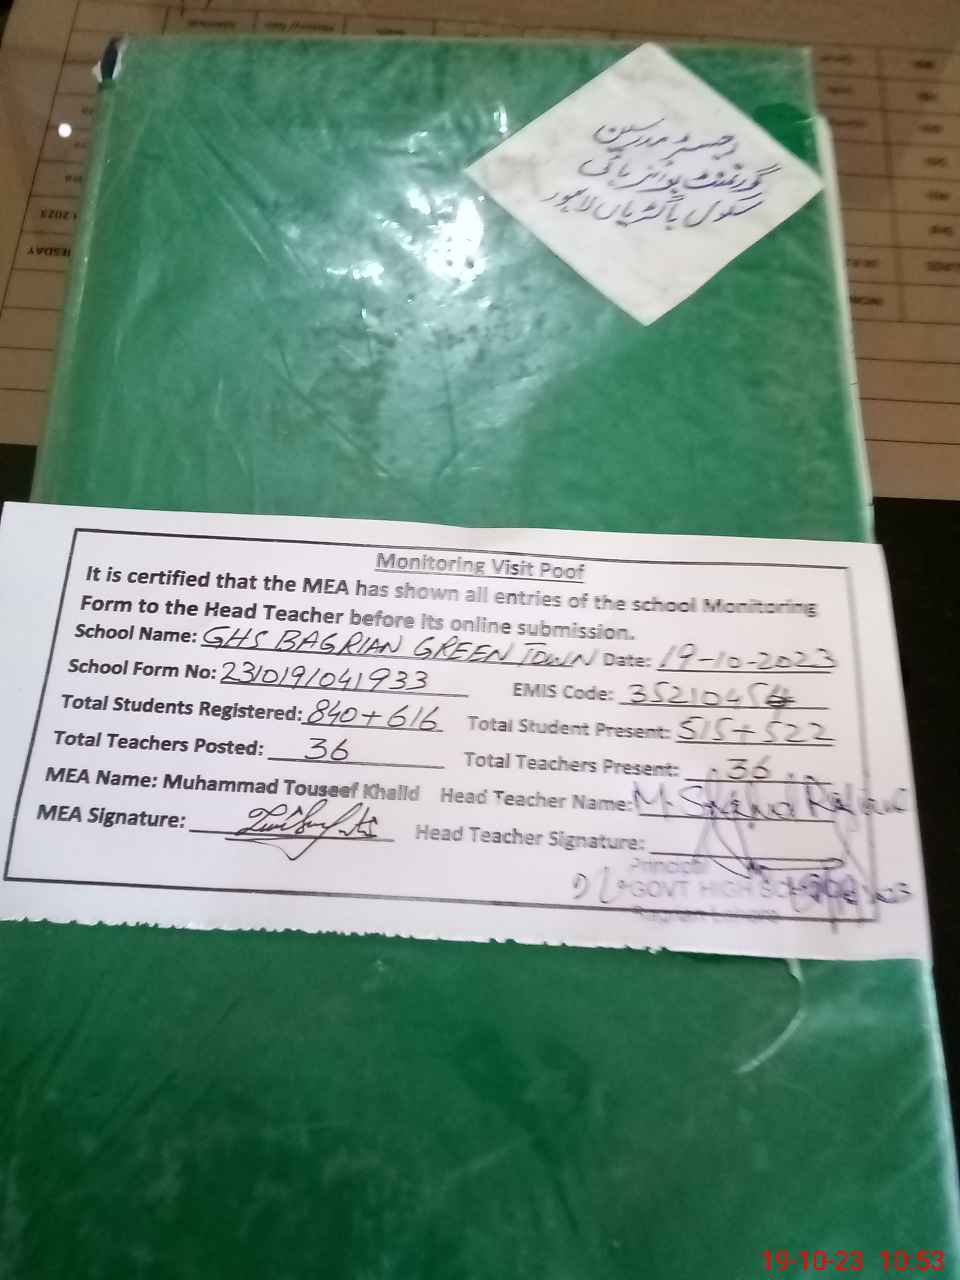 رجسٹر مدرسین
گورنمنٹ بوائز ہائی
سکول باگڑیاں لاہور
Monitoring Visit Poof
It is certified that the MEA has shown all entries of the school Monitoring
Form to the Head Teacher before its online submission.
School Name: GHS BAGRIAN GREEN TOWN Date: 19-10-2023
School Form No: 231019/041933 EMIS Code: 35210454
Total Students Registered: 840+616 Total Student Present: 515+522
Total Teachers Posted: 36 Total Teachers Present: 36
MEA Name: Muhammad Touseef Khalid Head Teacher Name: M. Shahid Rafique
MEA Signature: Head Teacher Signature:
Principal
GOVT HIGH
Bagrian Lahore
19-10-23 10:53